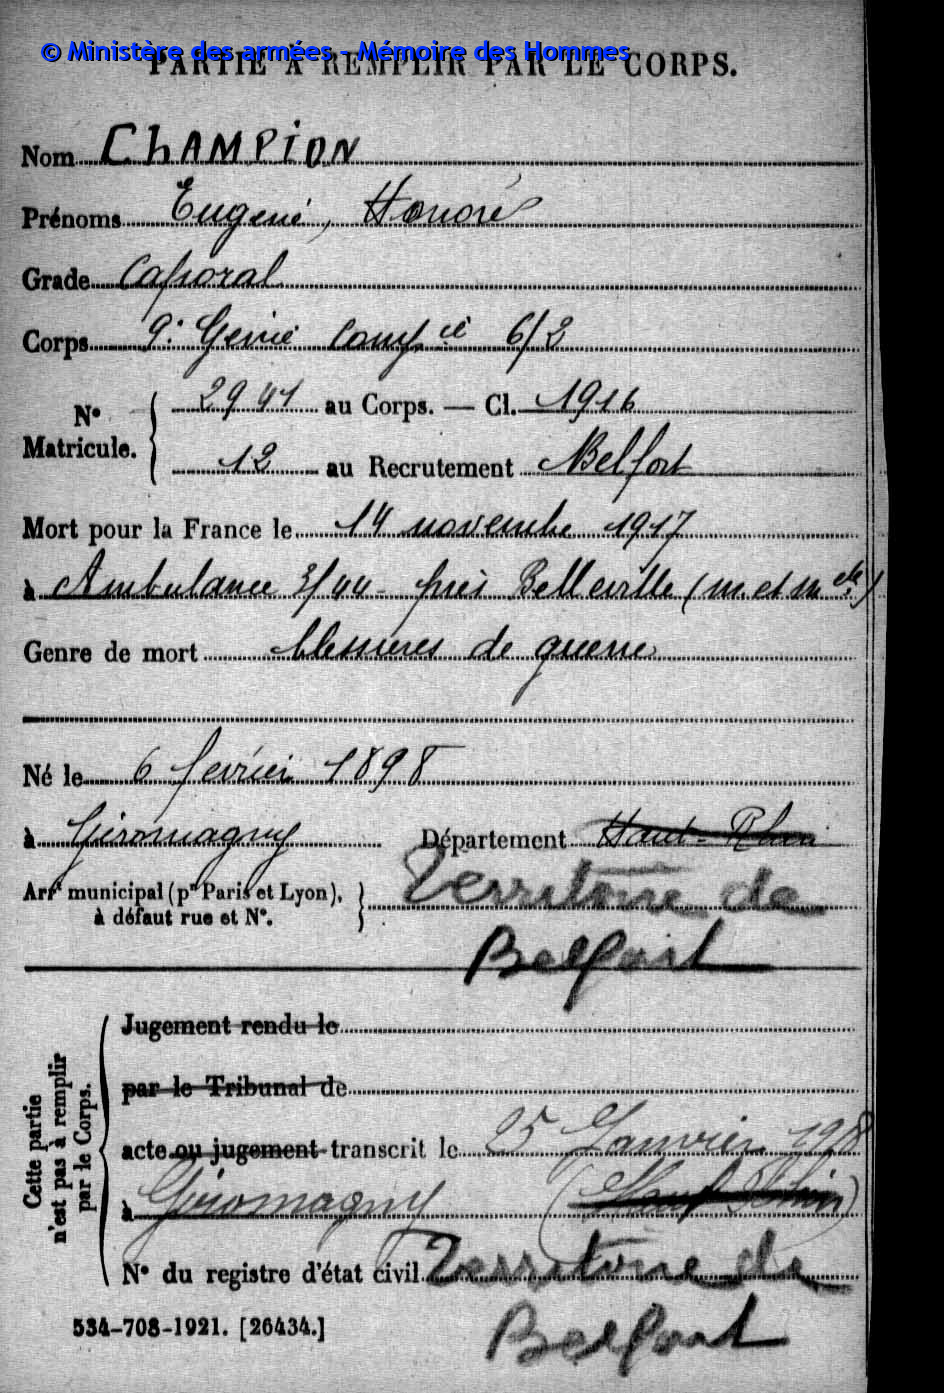 © Ministère des armées - Mémoire des Hommes
PARTIE À REMPLIR PAR LE CORPS.
Nom ChAMPION
Prénoms Eugène, Honoré
Grade Caporal
Corps 9e Génie Comp.ie 6/2
N° Matricule. 2941 au Corps. — Cl. 1916
12 au Recrutement Belfort
Mort pour la France le 14 novembre 1917
à Ambulance 3/44 - près Belleville (M. et M elle)
Genre de mort blessures de guerre
Né le 6 février 1898
à Giromagny Département Haut-Rhin
Arrt municipal (pr Paris et Lyon), à défaut rue et N°. Territoire de
Belfort
Cette partie n'est pas à remplir par le Corps.
Jugement rendu le
par le Tribunal de
acte ou jugement transcrit le 25 Janvier 1918
à Giromagny (Haut Rhin)
N° du registre d'état civil Territoire de
Belfort
534-708-1921. [26434.]